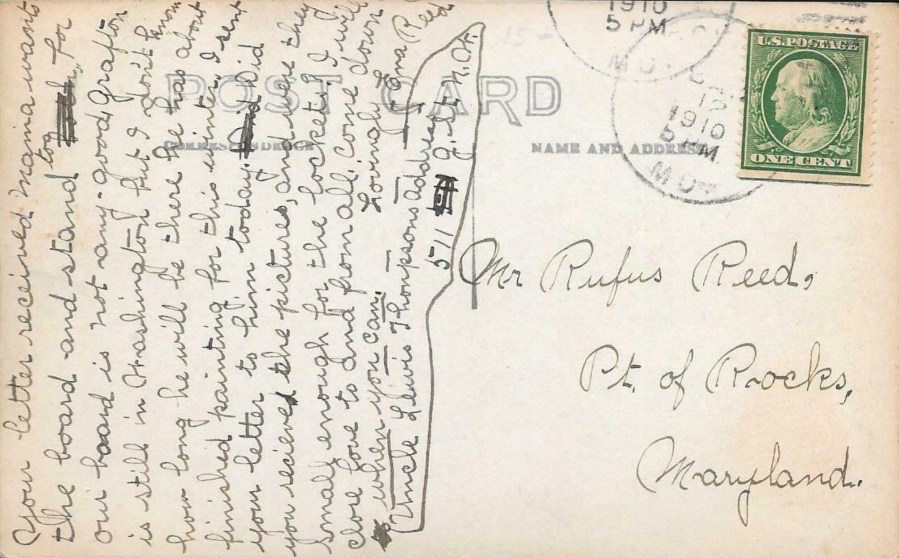 POST CARD
CORRESPONDENCE
NAME AND ADDRESS
U.S. POSTAGE
ONE CENT
1910
5 PM
MD.
1910
5 PM
MD.
Your letter received Mama wants
the board and stand too for
our board is not any-good, Grafton
is still in Washington but I don't know
how long he will be there he has about
finished painting for this winter. I sent
your letter to him today. Did
you recieved the pictures, and were they
small enough for the lockets? I will
close love to and from all. Come down
when you can. Lovingly Ema Reed
Uncle Lewis Thompsons address
511 g. St. N.W.
Mr Rufus Reed,
Pt. of Rocks,
Maryland.